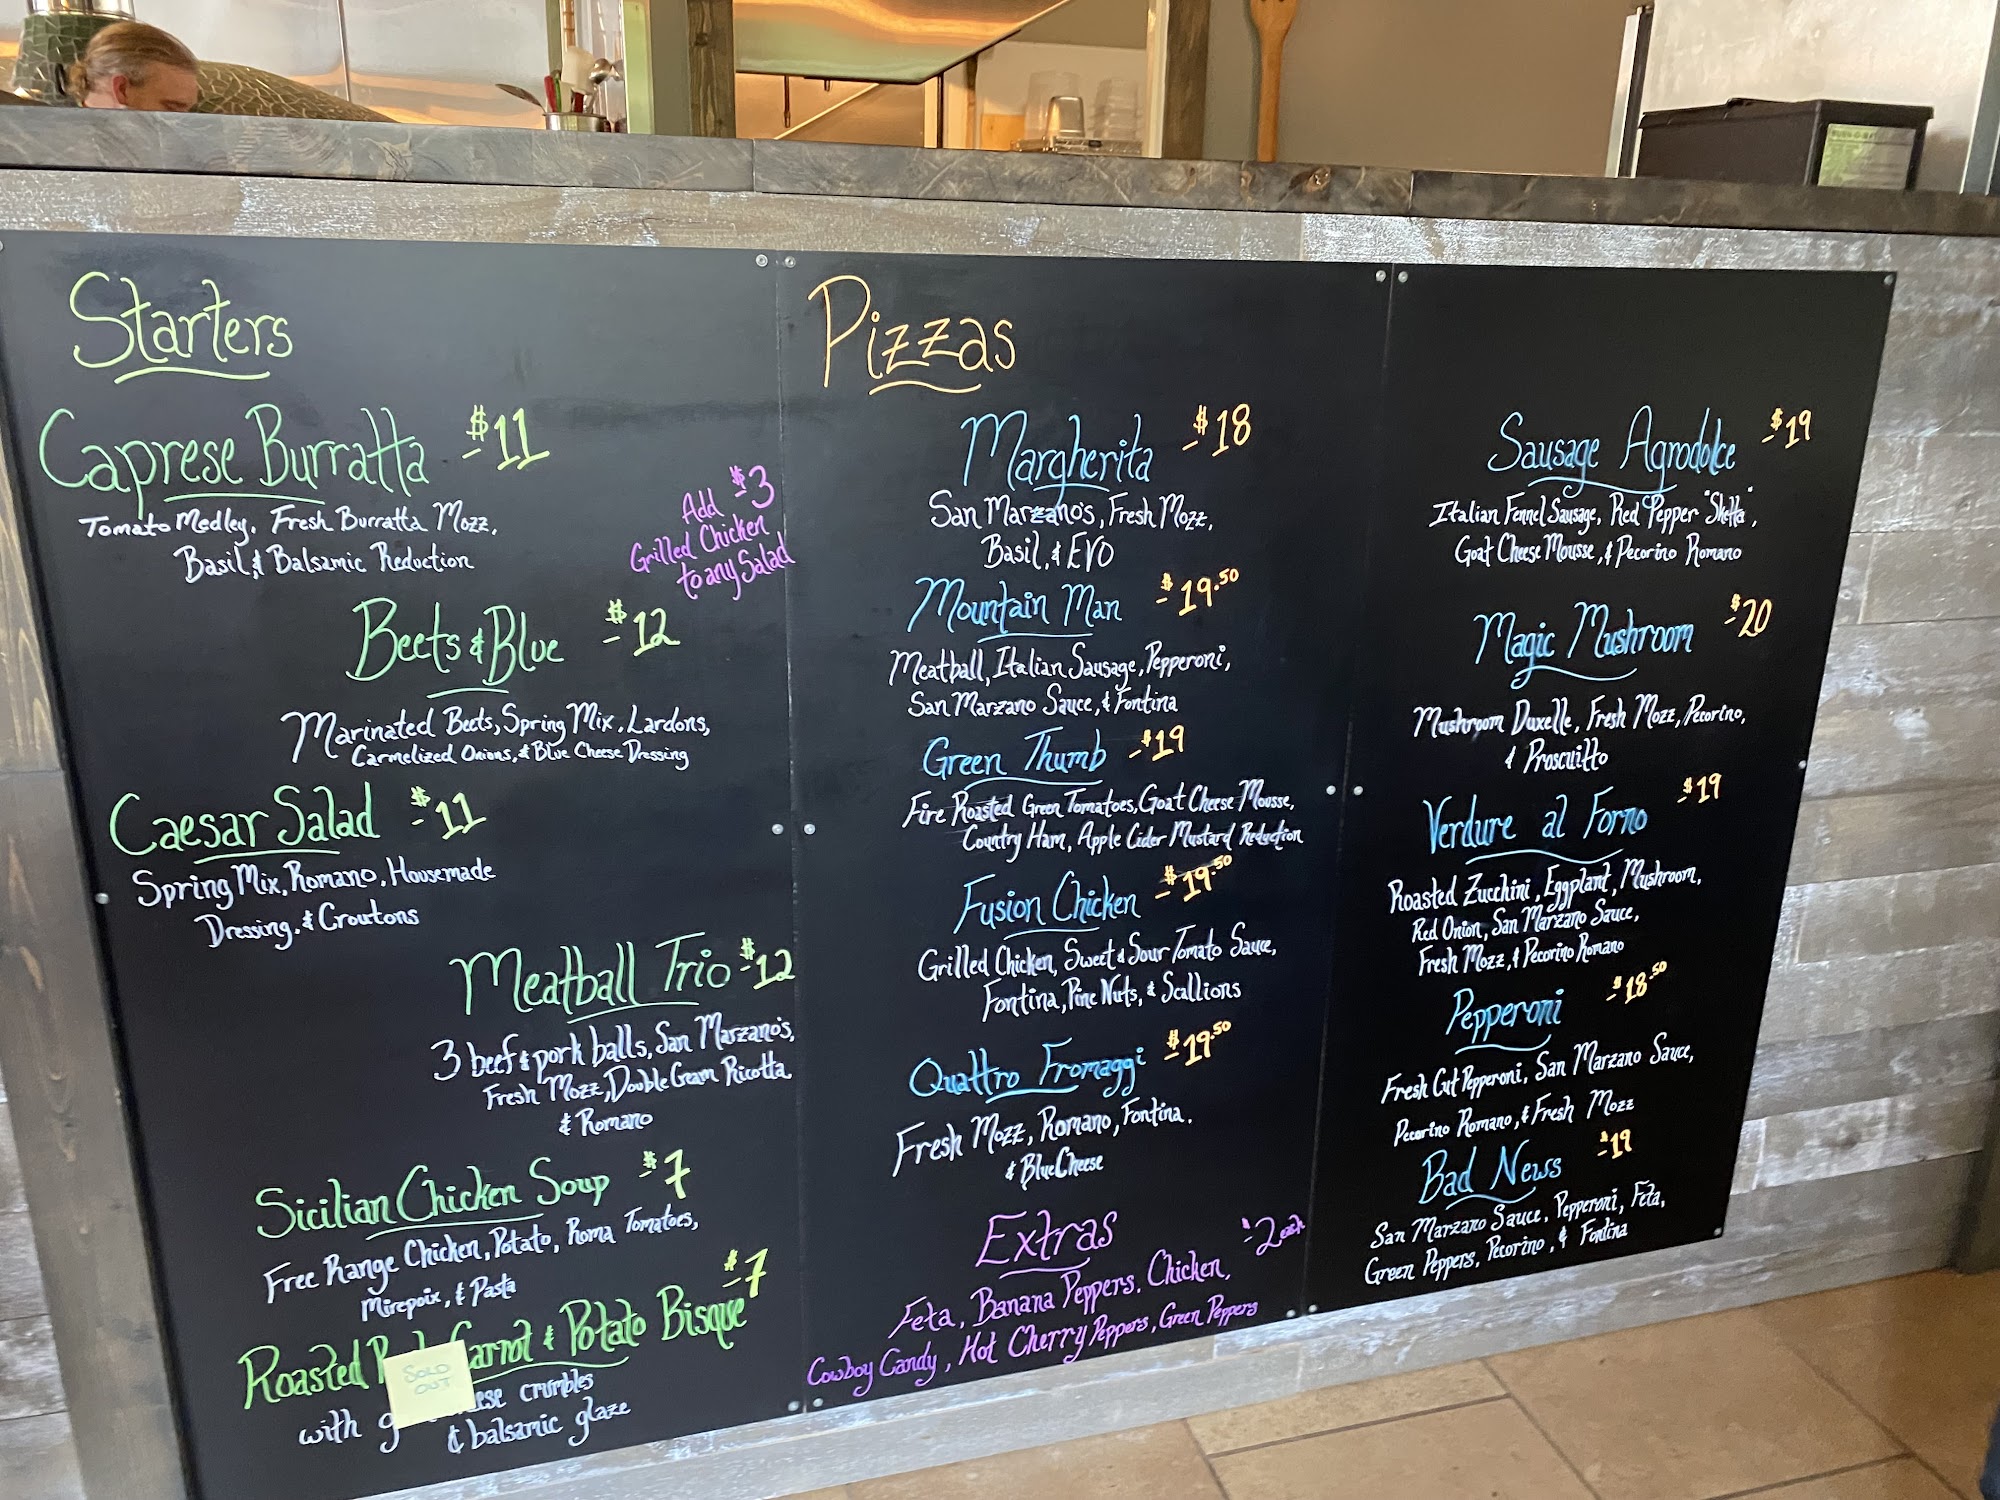 Starters
Caprese Burratta - $11
Tomato Medley, Fresh Burratta Mozz,
Basil, & Balsamic Reduction
Add - $3
Grilled Chicken
to any Salad
Beets & Blue - $12
Marinated Beets, Spring Mix, Lardons,
Carmelized Onions, & Blue Cheese Dressing
Caesar Salad - $11
Spring Mix, Romano, Housemade
Dressing, & Croutons
Meatball Trio - $12
3 beef & pork balls, San Marzano's,
Fresh Mozz, Double Cream Ricotta,
& Romano
Sicilian Chicken Soup - $7
Free Range Chicken, Potato, Roma Tomatoes,
Mirepoix, & Pasta
Roasted Carrot & Potato Bisque - $7
SOLD
OUT
with crumbles
& balsamic glaze
Pizzas
Margherita - $18
San Marzano's, Fresh Mozz,
Basil, & EVO
Mountain Man - $19.50
Meatball, Italian Sausage, Pepperoni,
San Marzano Sauce, & Fontina
Green Thumb - $19
Fire Roasted Green Tomatoes, Goat Cheese Mousse,
Country Ham, Apple Cider Mustard Reduction
Fusion Chicken - $19.50
Grilled Chicken, Sweet & Sour Tomato Sauce,
Fontina, Pine Nuts, & Scallions
Quattro Fromaggi - $19.50
Fresh Mozz, Romano, Fontina,
& Blue Cheese
Extras - $2 each
Feta, Banana Peppers, Chicken,
Cowboy Candy, Hot Cherry Peppers, Green Peppers
Sausage Agrodolce - $19
Italian Fennel Sausage, Red Pepper "Sketta",
Goat Cheese Mousse, & Pecorino Romano
Magic Mushroom - $20
Mushroom Duxelle, Fresh Mozz, Pecorino,
& Proscuitto
Verdure al Forno - $19
Roasted Zucchini, Eggplant, Mushroom,
Red Onion, San Marzano Sauce,
Fresh Mozz, & Pecorino Romano
Pepperoni - $18.50
Fresh Cut Pepperoni, San Marzano Sauce,
Pecorino Romano, & Fresh Mozz
Bad News - $19
San Marzano Sauce, Pepperoni, Feta,
Green Peppers, Pecorino, & Fontina